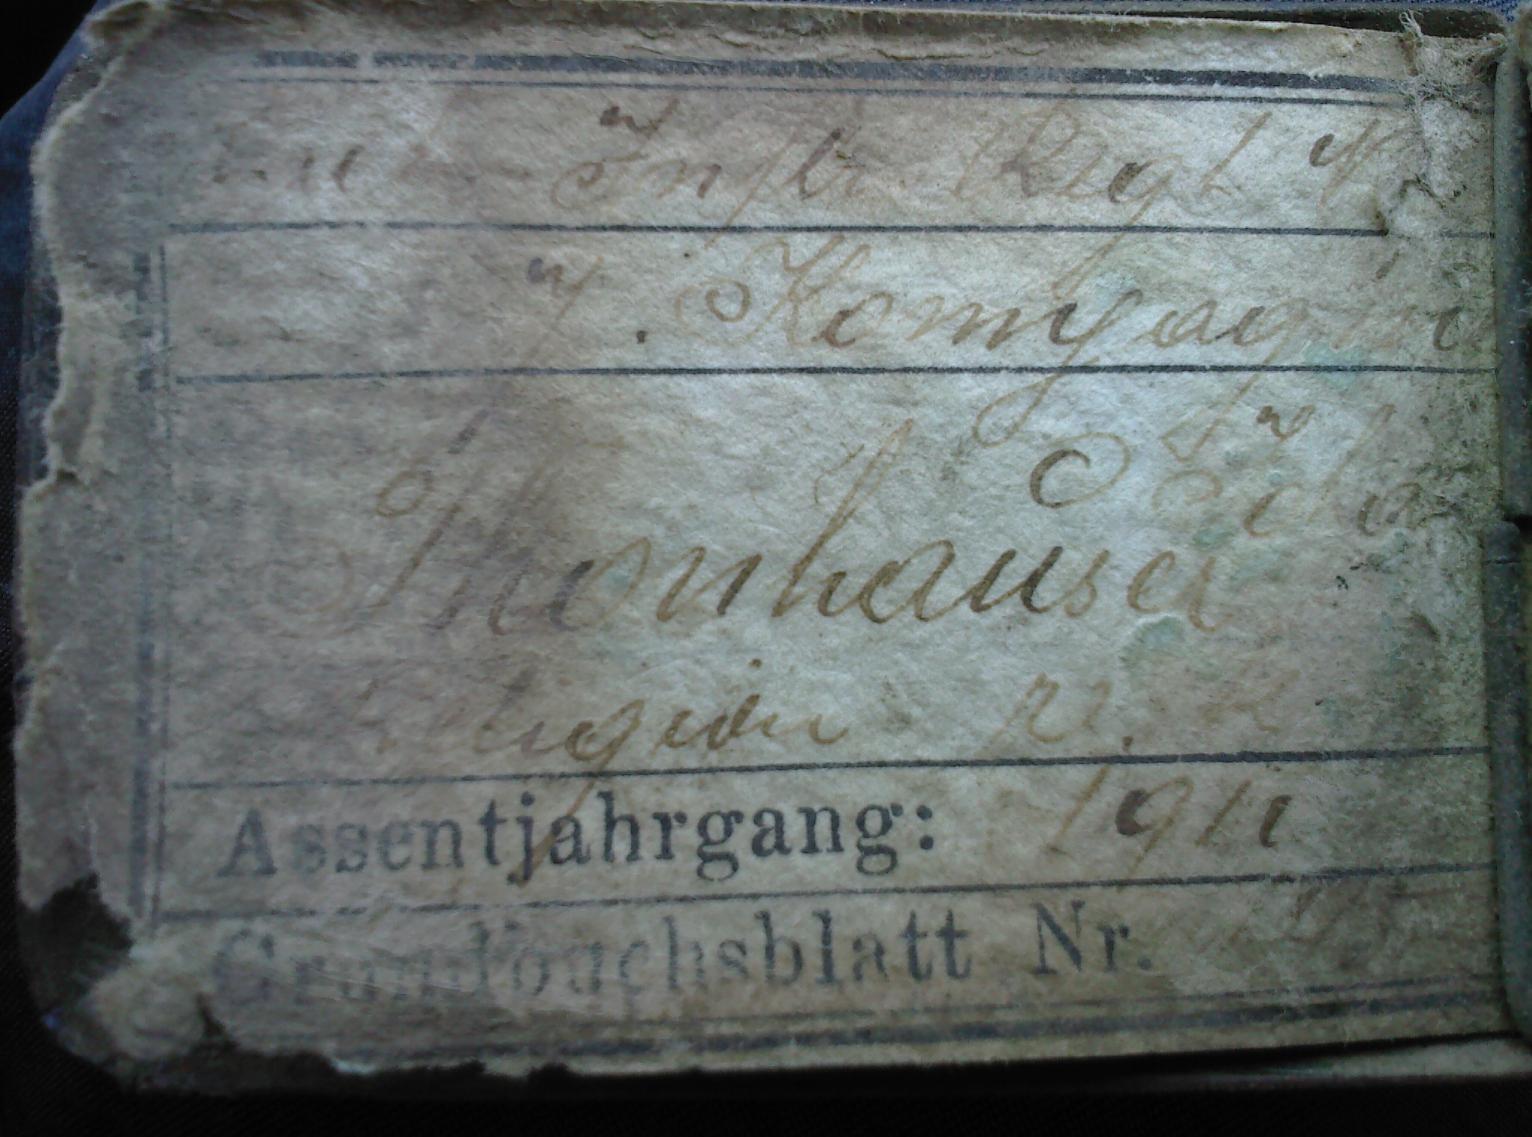 Inftr. Regt N
7. Kompagnie
Thonhauser
Religion r. k.
Assentjahrgang: 1911
Grundbuchsblatt Nr.